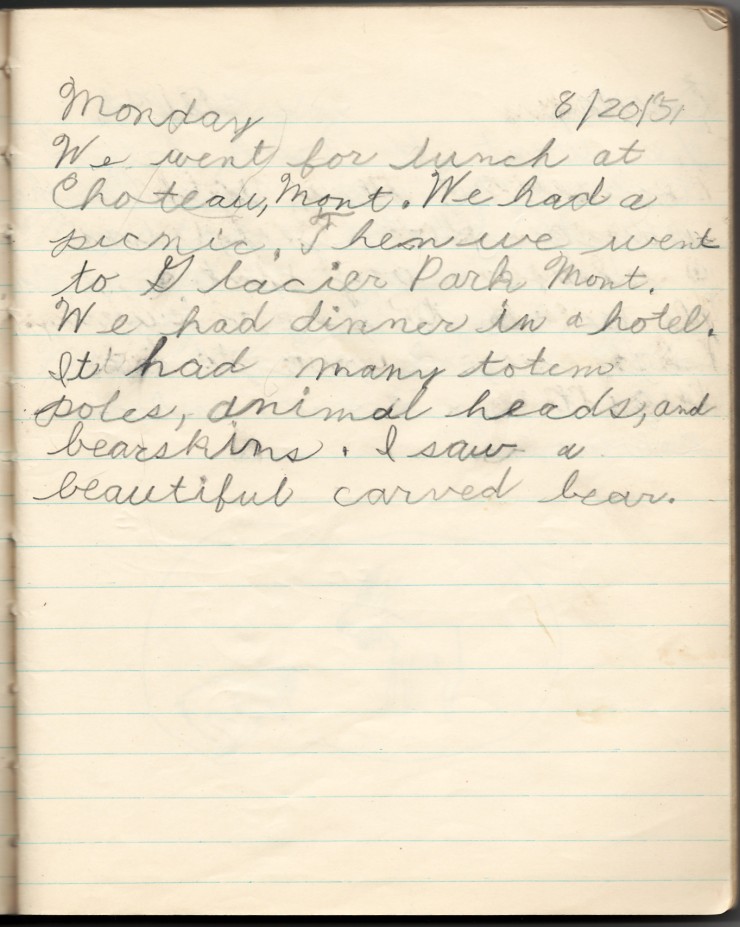 Monday 8/20/51
We went for lunch at
Choteau, Mont. We had a
picnic. Then we went
to Glacier Park Mont.
We had dinner in a hotel.
It had many totem
poles, animal heads, and
bearskins. I saw a
beautiful carved bear.